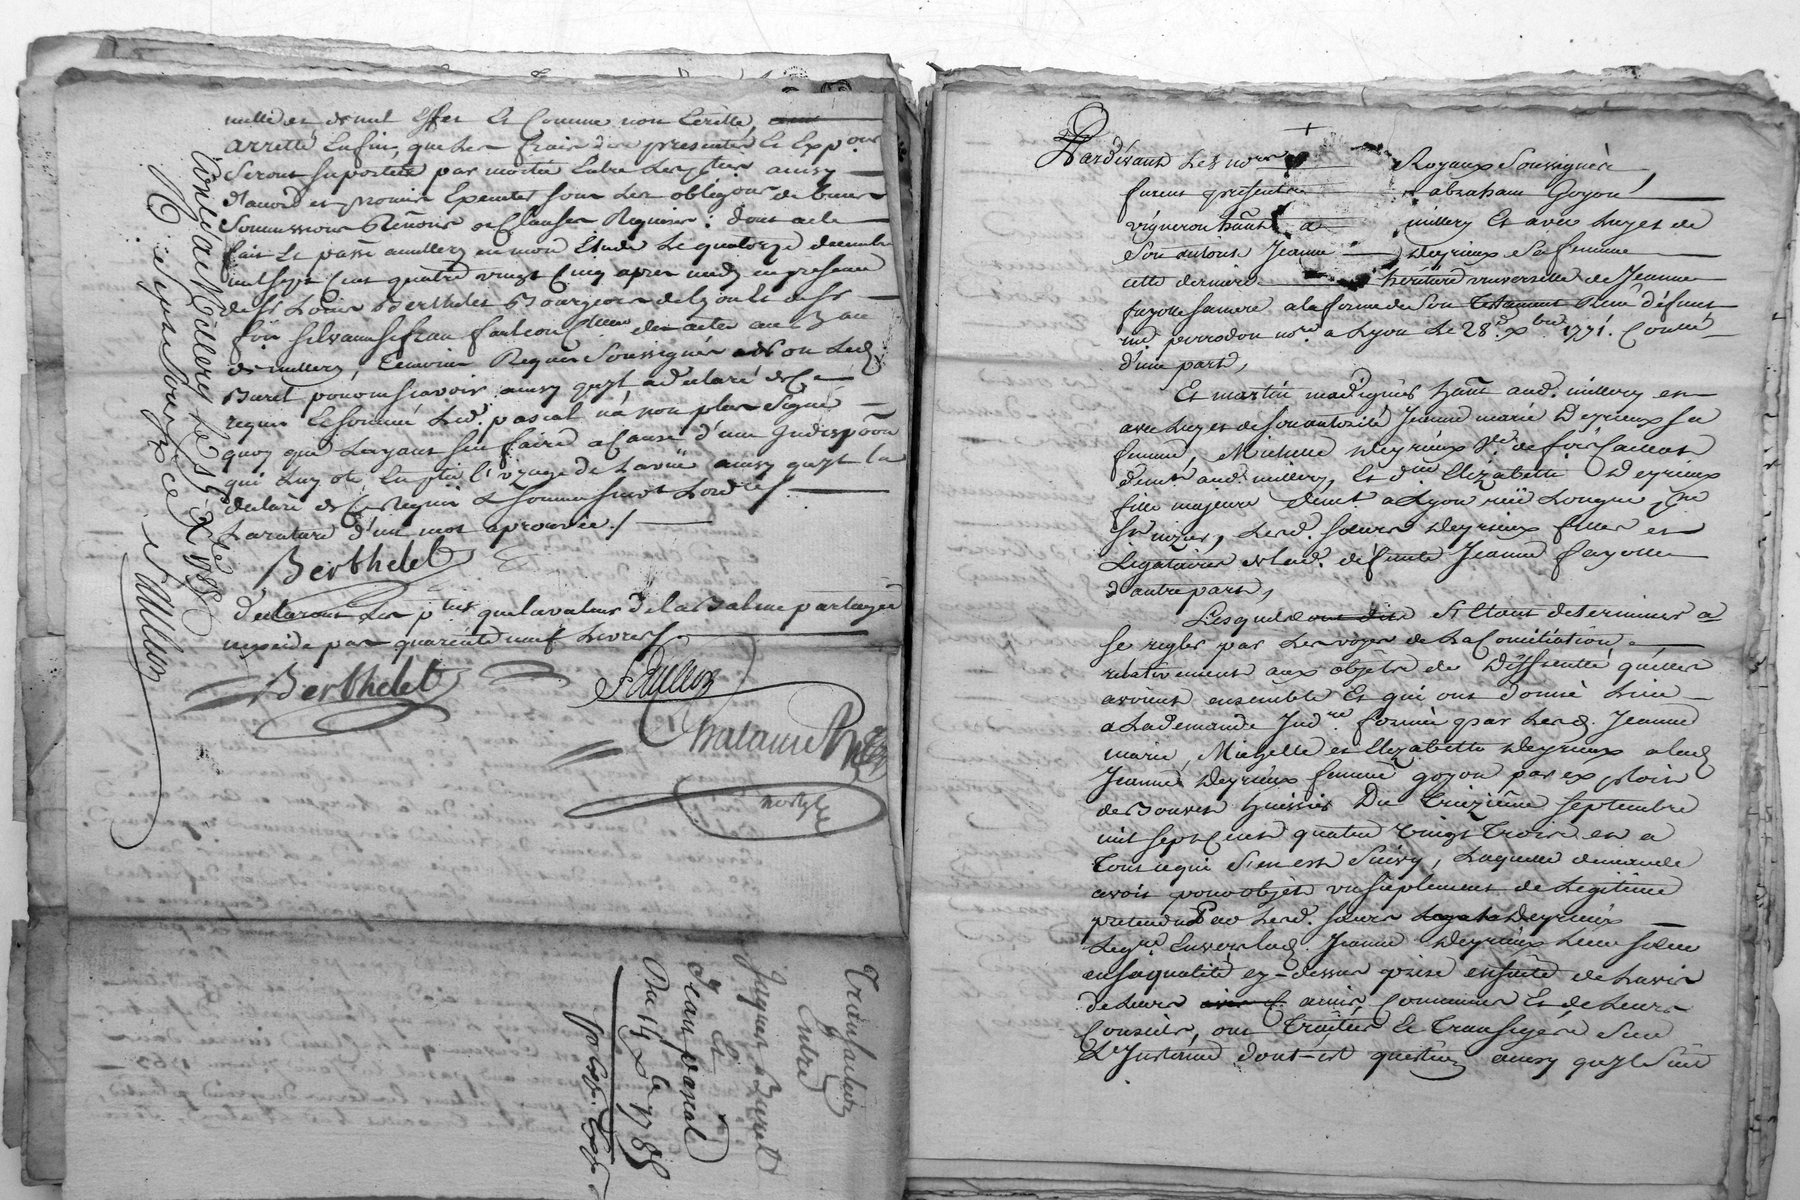 nulle et de nul effet et comme non Ecritte,
arretté Enfin, que les frais des presentes et Exp.ons
Seront suportés par moitié Entre les pties ainsy
Soumissions Renons et Clauses Requises: dont acte
fait Et passé a millery en mon Etude Le quatorze decembre
mil sept Cent quatre vingt Cinq apres midy en presence
de Sr Louis Berthelet Bourgeois de Lyon Et de Sr
de millery, temoins Requis Soussignés
Buret pour ne scavoir ainsy qu'yl a declaré de Ce
requis Et sommé Led. pascal n'a non plus Signé
quoy que sachant bien faire a Cause d'une Indispoon
qui Luy ote l'usage de la vüe ainsy qu'yl l'a
declaré de Ce Requis Et sommé
La rature d'un mot aprouvée /
Berthelet
declarant Les pties que la valeur de la Balme partagée
n'excède pas quarente neuf Livres /
Berthelet
Control. a Millery le 1785
Reçu quinze sous
Transaction
Entre
Jaques Buret
Et
Jean pascal
Du 14 Xbre 1785
Pardevant Les nores Royaux Soussignés
furent presents abraham Goyon
vigneron hant a millery Et avec Luy et de
Son autorité Jeanne Deyrieux sa femme
cette derniere héritière universelle de Jeanne
fayolle sa mere a la forme de Son Testament Reçu défunt
me perrodon nore a Lyon Le 28e Xbre 1771. Conllé
d'une part,
Et martin madignier hant aud. millery et
avec Luy et de Son autorité Jeanne marie Deyrieux sa
femme, Michelle Deyrieux Ve de feu
demt aud. millery, Et dlle Elizabeth Deyrieux
fille majeure demt a Lyon rüe Longue psse
St nizier, Lesd. Soeurs Deyrieux filles et
Legataires de lad. defunte Jeanne fayolle
d'autre part,
Lesquels S'Etant determinés a
se regler par Les voyes de La Conciliation
rélativement aux objets de Difficulté qu'elles
avoient ensemble Et qui ont donné Lieu
a La demande Judre formée par Lesd. Jeanne
marie, Michelle et Elizabeth Deyrieux a lad.
Jeanne Deyrieux femme goyon par exploit
de Bouvet huissier Du treizième septembre
mil sept Cent quatre vingt Trois et a
Tout ce qui S'en est Suivy, Laquelle demande
avoit pour objet un Suplement de Legitime
pretendu Par Lesd. soeurs Deyrieux
Legres Envers lad. Jeanne Deyrieux Leur soeur
en sa qualité cy-dessus prise ensuite de L'avis
de Leurs amis Communs Et de Leurs
Conseils, ont Traités Et Transigés Sur
L'Instance dont est question ainsy qu'yl Suit